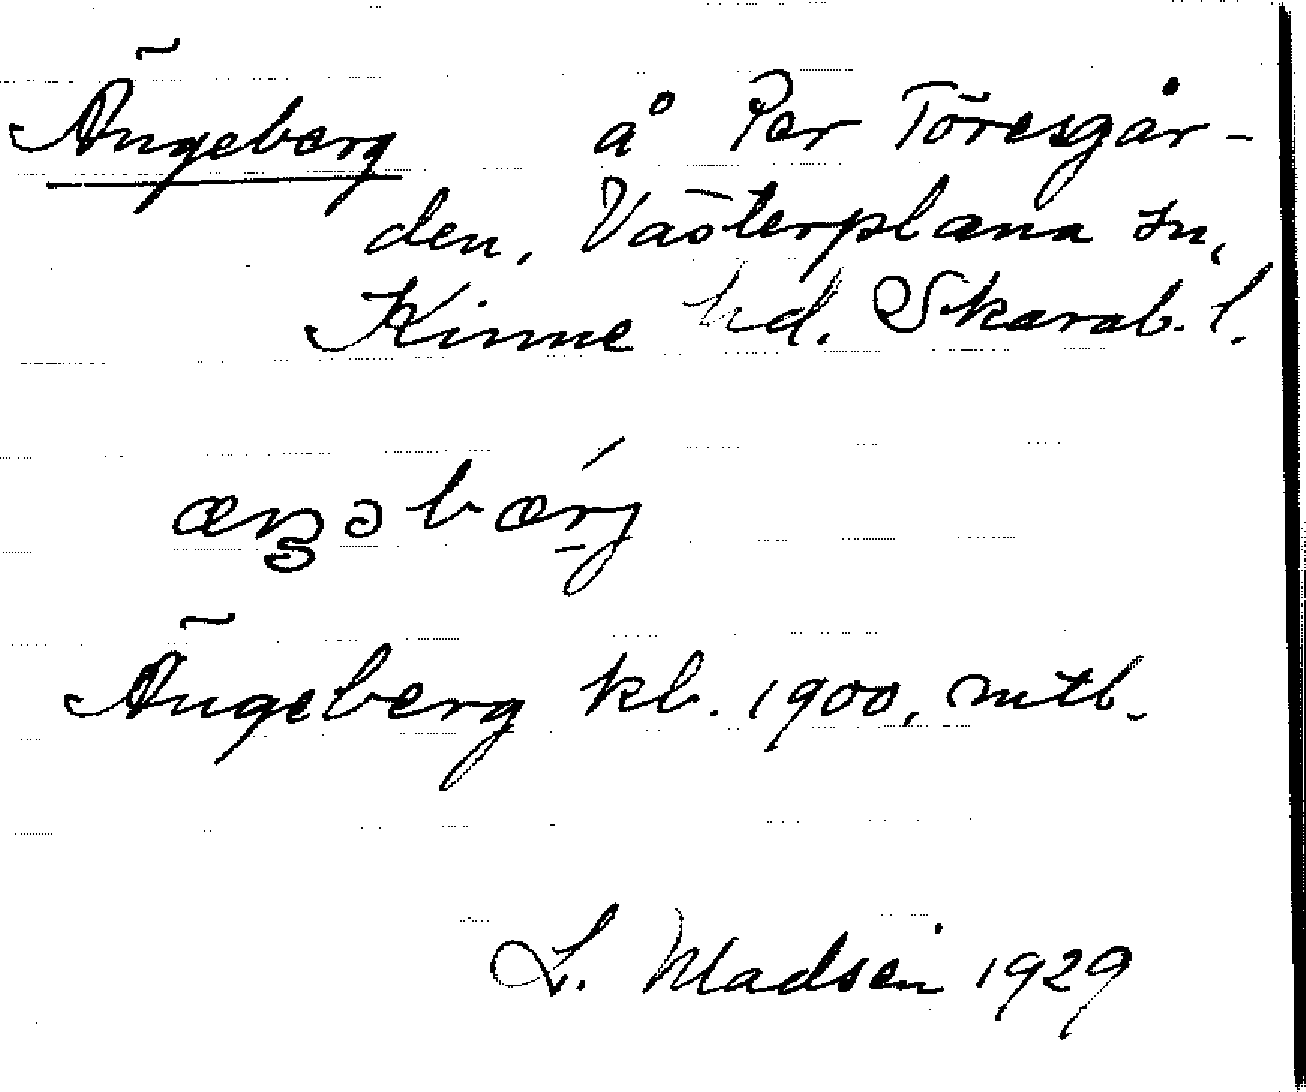 Ängeberg å Per Töresgår-
den, Västerplana sn,
Kinne hd. Skarab. l.
Ängeberg kb. 1900, mtb.
L. Madsén 1929